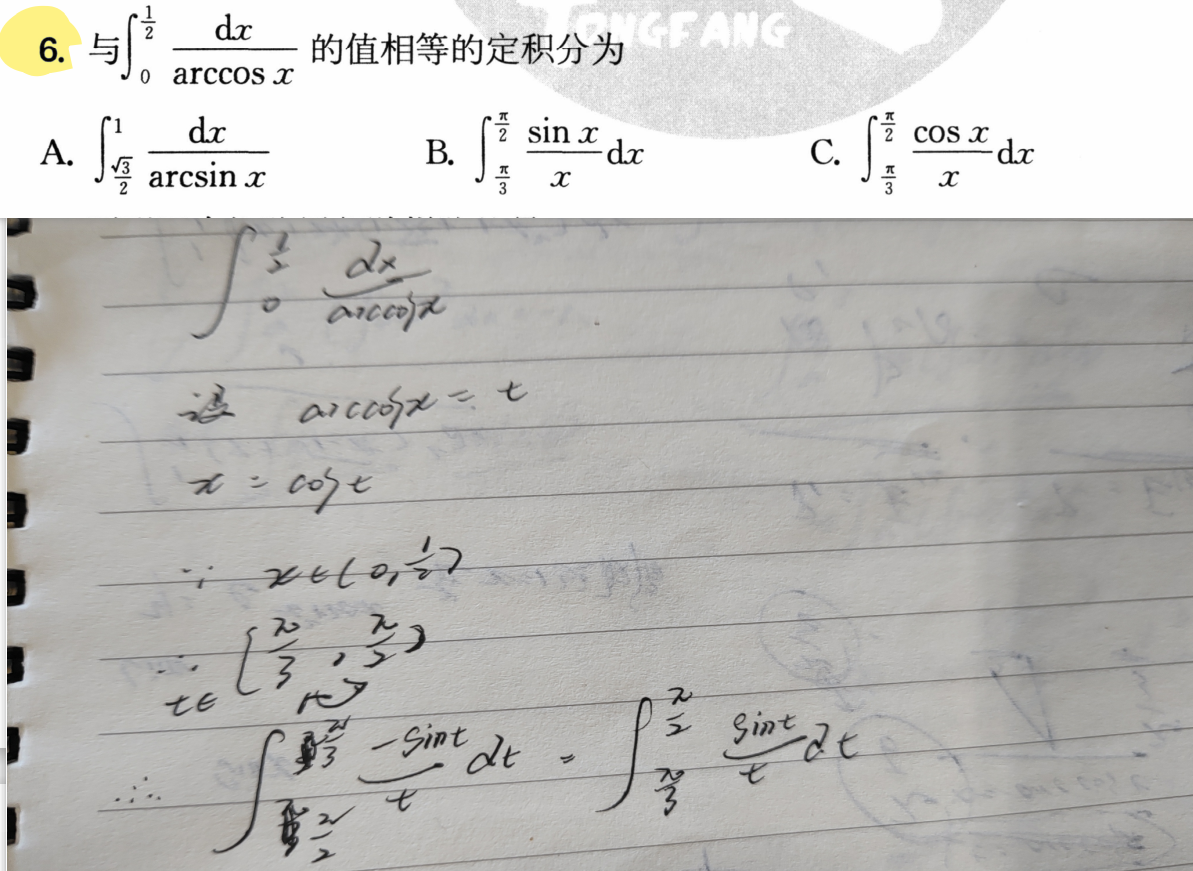 TONGFANG
6. 与∫_0^{1/2} dx/arccos x 的值相等的定积分为
A. ∫_{√3/2}^1 dx/arcsin x B. ∫_{π/3}^{π/2} sin x/x dx C. ∫_{π/3}^{π/2} cos x/x dx
∫_0^{1/2} dx/arccosx
设 arccosx = t
x = cost
∵ x∈(0,1/2)
∴ t∈ [π/3, π/2)
∴ ∫_{π/2}^{π/3} -sint/t dt = ∫_{π/3}^{π/2} sint/t dt